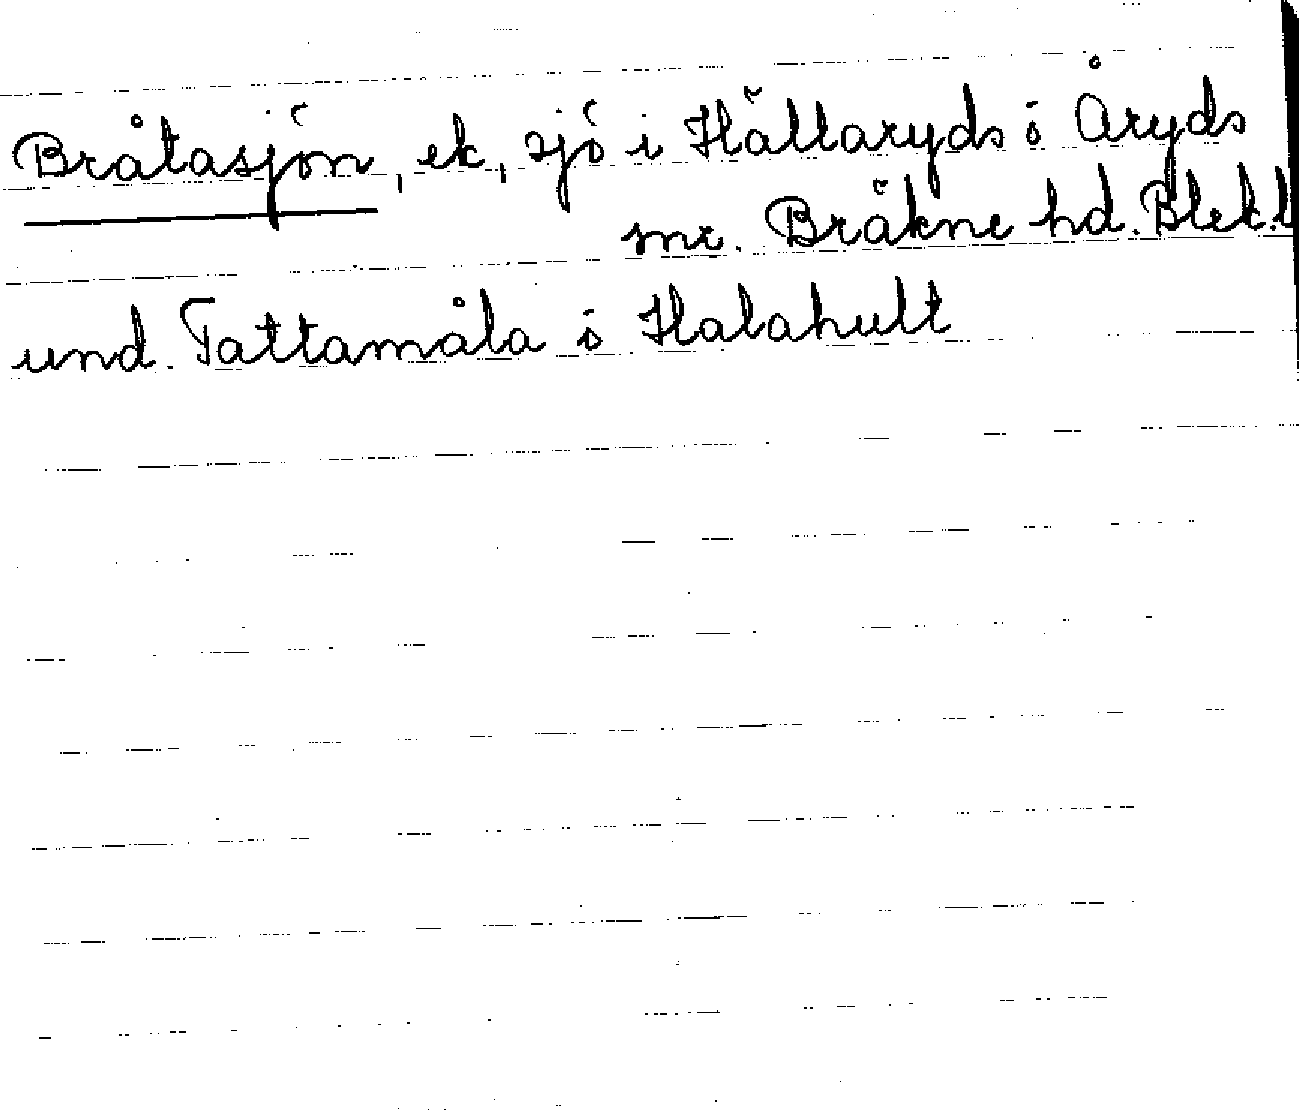 Bråtasjön, ek, sjö i Hällaryds o Åryds
snr. Bräkne hd. Blek.l
und. Tattamåla o Halahult